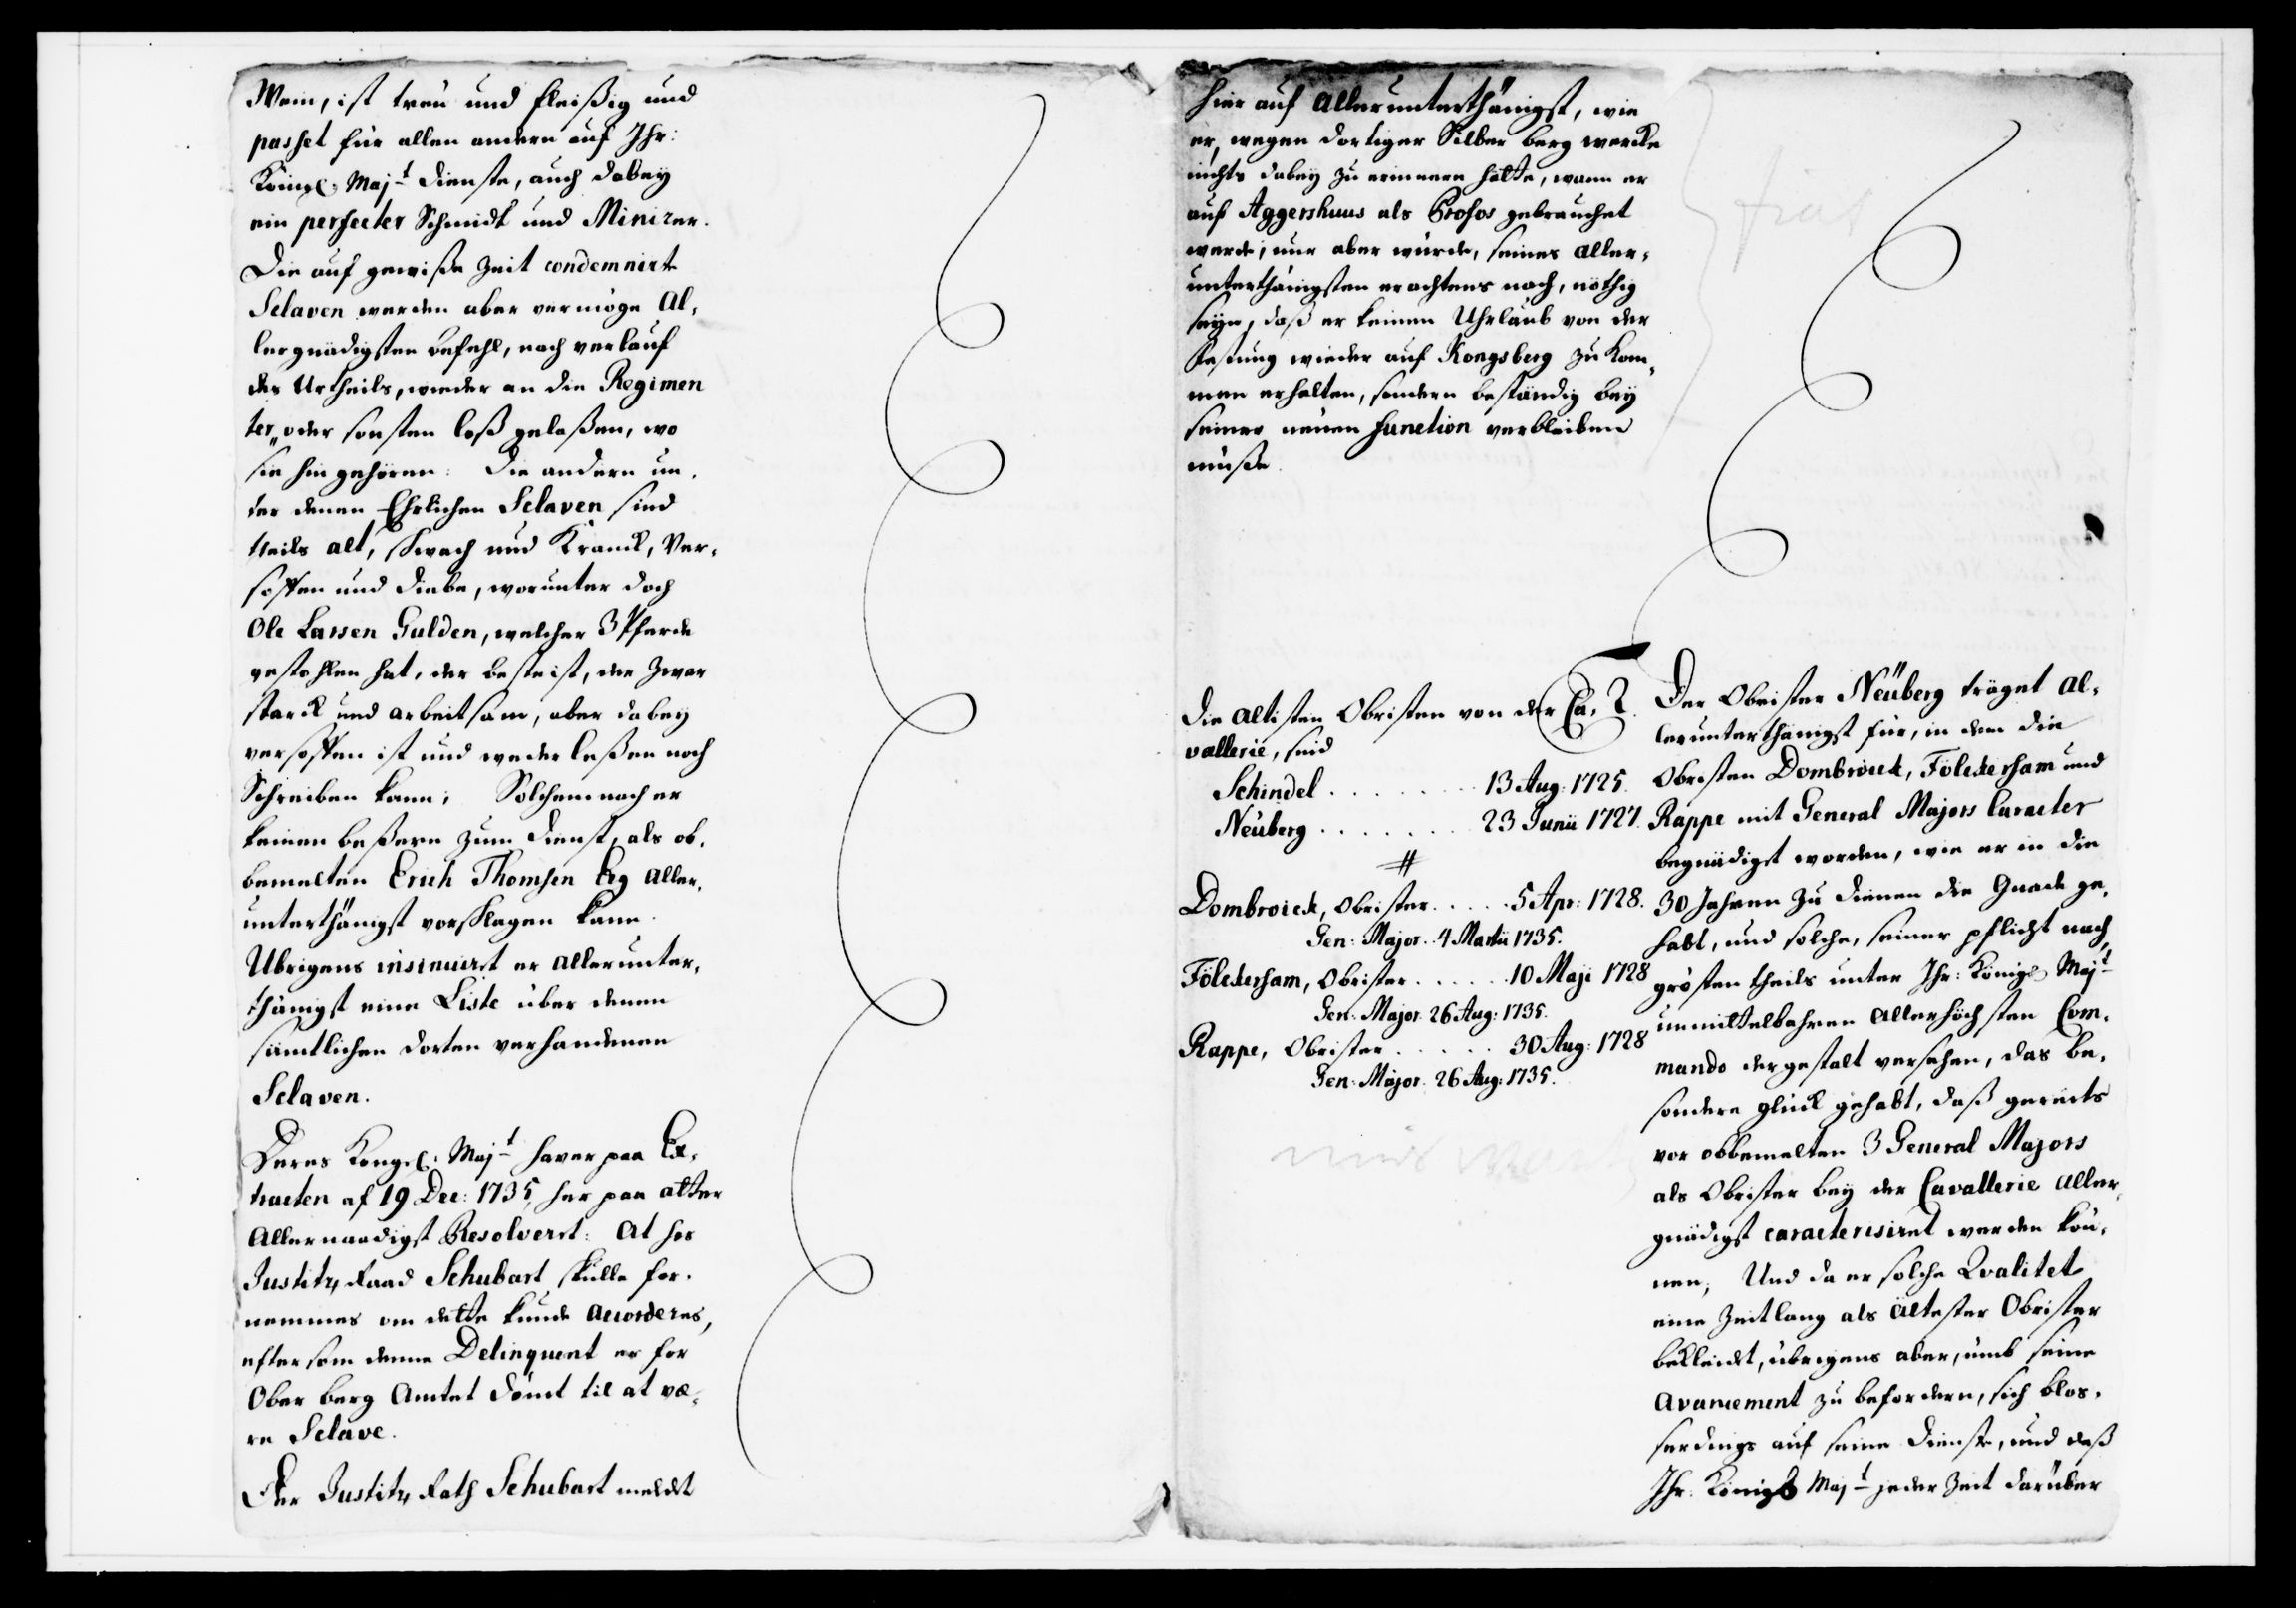 Wein, ist treu und fleißig und
passet für allen andern auf Ihr:
Königl: Majt Dienste, auch dabey
ein perfecter Schmidt und Minirer.
Die auf gewiße Zeit condemnirte
Sclaven werden aber vermöge Al,
lergnädigsten befehl, nach verlauf
des Urtheils, wieder an die Regimen
ter, oder sonsten loß gelaßen, wo
sie hin gehören: Die andern un,
ter denen Ehrlichen Sclaven sind
theils alt, schwach und Kranck, Ver,
soffen und Diebe, worunter doch
Ole Larsen Gulden, welcher 3 Pferde
gestohlen hat, der beste ist, der zwar
starck und arbeitsam, aber dabey
versoffen ist und weder leßen noch
Schreiben kann; Solchemnach er
keinen beßern zum Dienst, als ob,
bemelten Erich Thomsen Eeg aller,
unterthänigst vorschlagen kann.
Ubrigens insinuirt er allerunter,
thänigst eine Liste über denen
sämtlichen dorten verhandenen
Sclaven.
Deres Kongel: Majt haver paa Ex,
tracten af 19 Dec: 1735, her paa atter
Allernaadigst Resolveret: At hos
Justitz Raad Schubart skulle for,
nemmes om dette kunde accorderes,
eftersom denne Delinquent er for
Ober berg Amtet dömt til at væ,
re Sclave.
Der Justitz Rath Schubart meldet
hier auf allerunterthänigst, wie
er, wegen dortiger Silber berg wercke
nichts dabey zu erinnern hätte, wann er
auf Aggershuus als Profos gebrauchet
werde; nur aber würde, seines aller,
unterthänigsten erachtens nach, nöthig
seyn, daß er keinen Uhrlaub von der
Festung wieder auf Kongsberg zu kom,
men erhalten, sondern beständig bey
seiner neuen function verbleiben
müße.
fiat
Die altisten Obristen von der Ca,
vallerie, seind
Schindel . . . . . . . . 13 Aug: 1725.
Neuberg . . . . . . . 23 Junii 1727.
#
Dombroick, Obrister . . . . . 5 Apr: 1728.
Gen: Major. 4 Martii 1735.
Fölckersham, Obrister . . . . . . 10 Maji 1728
Gen: Major. 26 Aug: 1735.
Rappe, Obrister . . . . . 30 Aug: 1728
Gen: Major. 26 Aug: 1735.
Der Obrister Neüberg träget al,
lerunterthänigst für, in dem die
Obristen Dombroick, Fölckersham und
Rappe mit General Majors Caracter
begnädigt worden, wie er in die
30 Jahren zu dienen die Gnade ge,
habt, und solche, seiner pflicht nach,
grösten theils unter Ihr: Königl Majt
unmittelbahren Allerhöchsten Com,
mando dergestalt versehen, das be,
sondere glück gehabt, daß gereits
vor obbemelten 3 General Majors
als Obrister bey der Cavallerie aller,
gnädigst caracterisiret werden kön,
nen; Und da er solche Qvalitet
eine Zeitlang als ältester Obrister
bekleidet, übrigens aber, umb seine
Avancement zu befordern, sich blos,
serdings auf seine Dienste, und daß
Ihr: Königl Majt jeder Zeit darüber